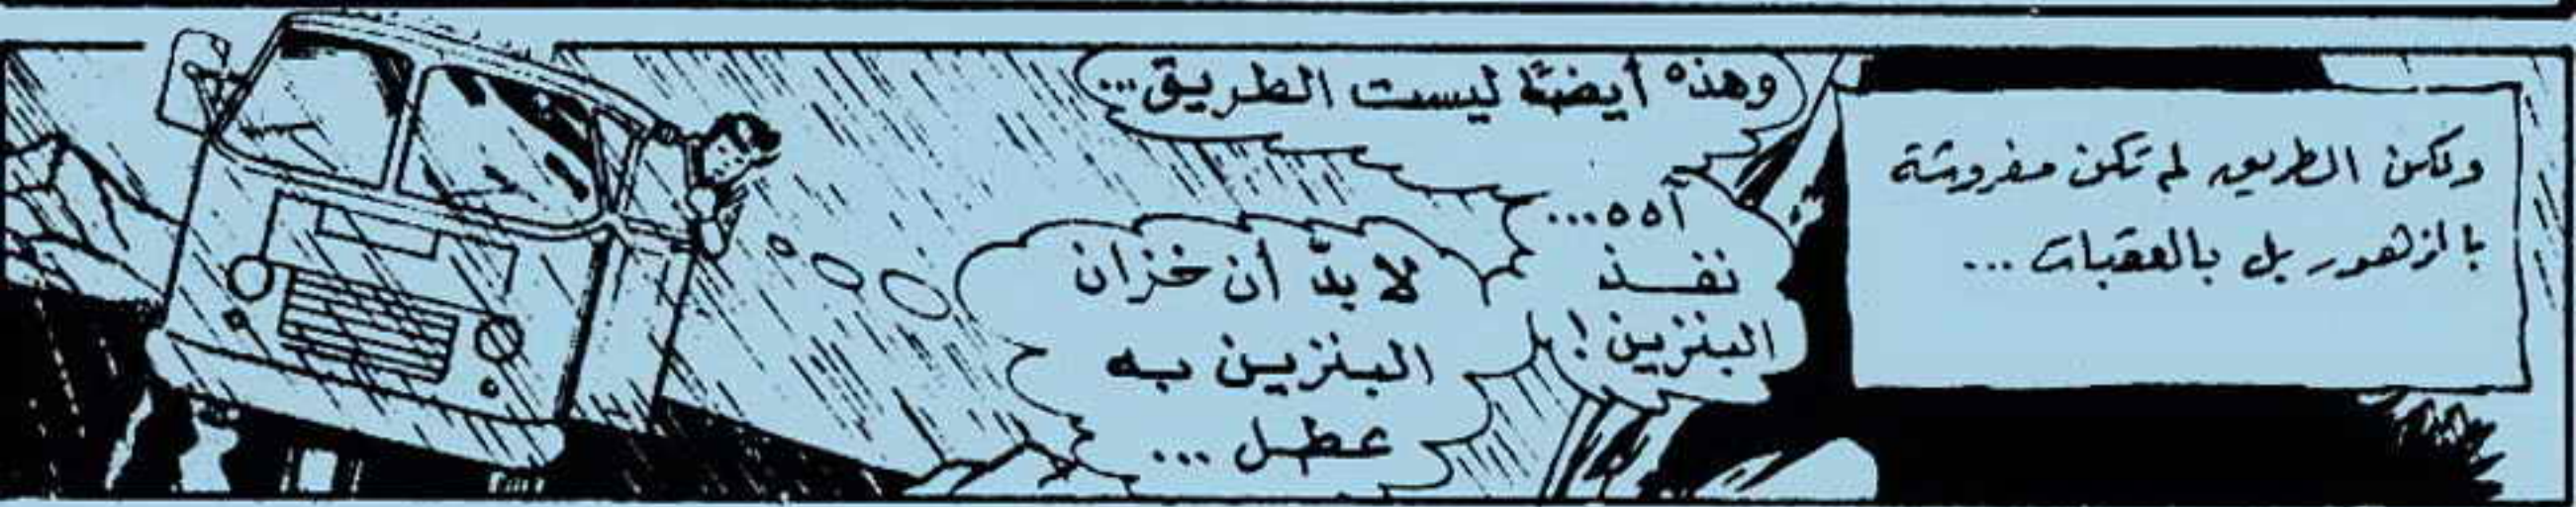 ولكن الطريق لم تكن مفروشة
بالزهور بل بالعقبات ...
وهذه أيضًا ليست الطريق...
آه ه...
نفذ
البنزين!
لا بدّ أن خزان
البنزين به
عطل ...